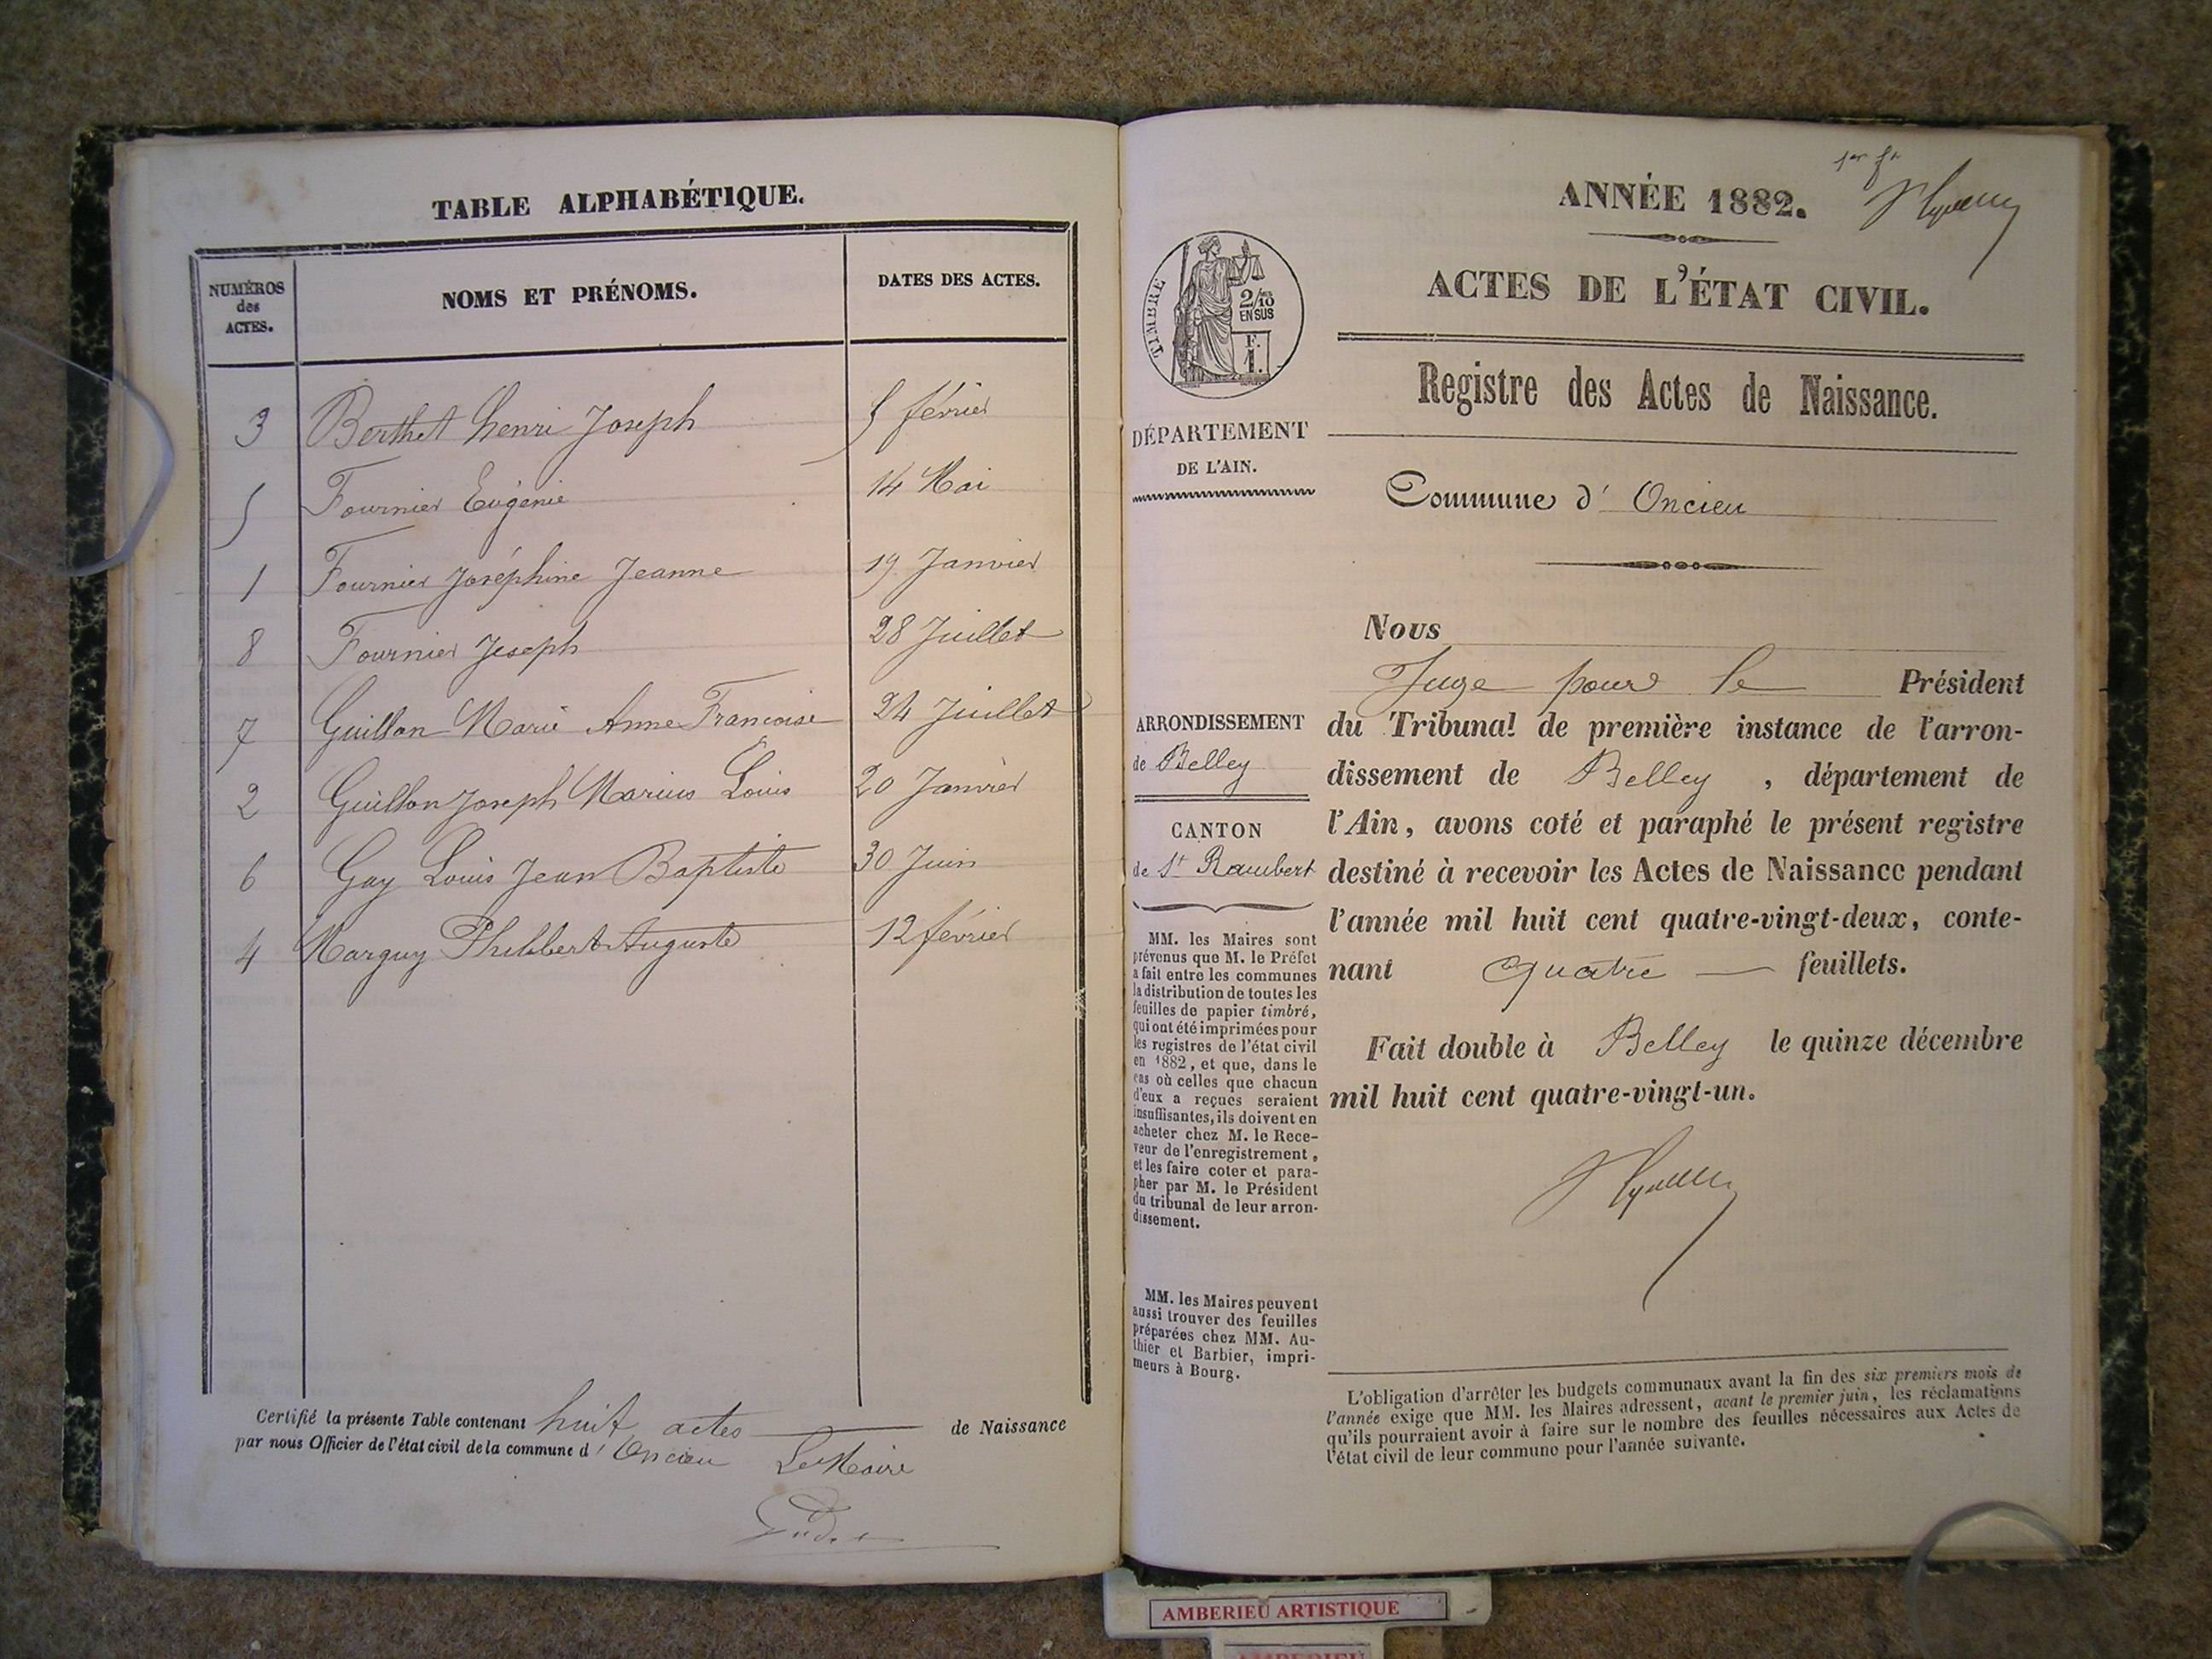 TABLE ALPHABÉTIQUE.
NUMÉROS des ACTES. NOMS ET PRÉNOMS. DATES DES ACTES.
3 Berthet henri Joseph 5 février
5 Fournier Eugénie 14 Mai
1 Fournier Joséphine Jeanne 19 Janvier
8 Fournier Joseph 28 Juillet
7 Guillon Marie Anne Francoise 24 Juillet
2 Guillon Joseph Marius Louis 20 Janvier
6 Gay Louis Jean Baptiste 30 Juin
4 Marguy Philibert Auguste 12 février
Certifié la présente Table contenant huit actes de Naissance
par nous Officier de l'état civil de la commune d' Oncieu Le Maire
ANNÉE 1882.
ACTES DE L'ÉTAT CIVIL.
TIMBRE
2/10
EN SUS
F.
1.
Registre des Actes de Naissance.
DÉPARTEMENT
DE L'AIN.
Commune d' Oncieu
Nous
Juge pour le Président
du Tribunal de première instance de l'arron-
dissement de Belley , département de
l'Ain, avons coté et paraphé le présent registre
destiné à recevoir les Actes de Naissance pendant
l'année mil huit cent quatre-vingt-deux, conte-
nant quatre feuillets.
Fait double à Belley le quinze décembre
mil huit cent quatre-vingt-un.
ARRONDISSEMENT
de Belley
CANTON
de St Rambert
MM. les Maires sont
prévenus que M. le Préfet
a fait entre les communes
la distribution de toutes les
feuilles de papier timbré,
qui ont été imprimées pour
les registres de l'état civil
en 1882, et que, dans le
cas où celles que chacun
d'eux a reçues seraient
insuffisantes, ils doivent en
acheter chez M. le Rece-
veur de l'enregistrement,
et les faire coter et para-
pher par M. le Président
du tribunal de leur arron-
dissement.
MM. les Maires peuvent
aussi trouver des feuilles
préparées chez MM. Au-
thier et Barbier, impri-
meurs à Bourg.
L'obligation d'arrêter les budgets communaux avant la fin des six premiers mois de
l'année exige que MM. les Maires adressent, avant le premier juin, les réclamations
qu'ils pourraient avoir à faire sur le nombre des feuilles nécessaires aux Actes de
l'état civil de leur commune pour l'année suivante.
AMBERIEU ARTISTIQUE
AMBERIEU